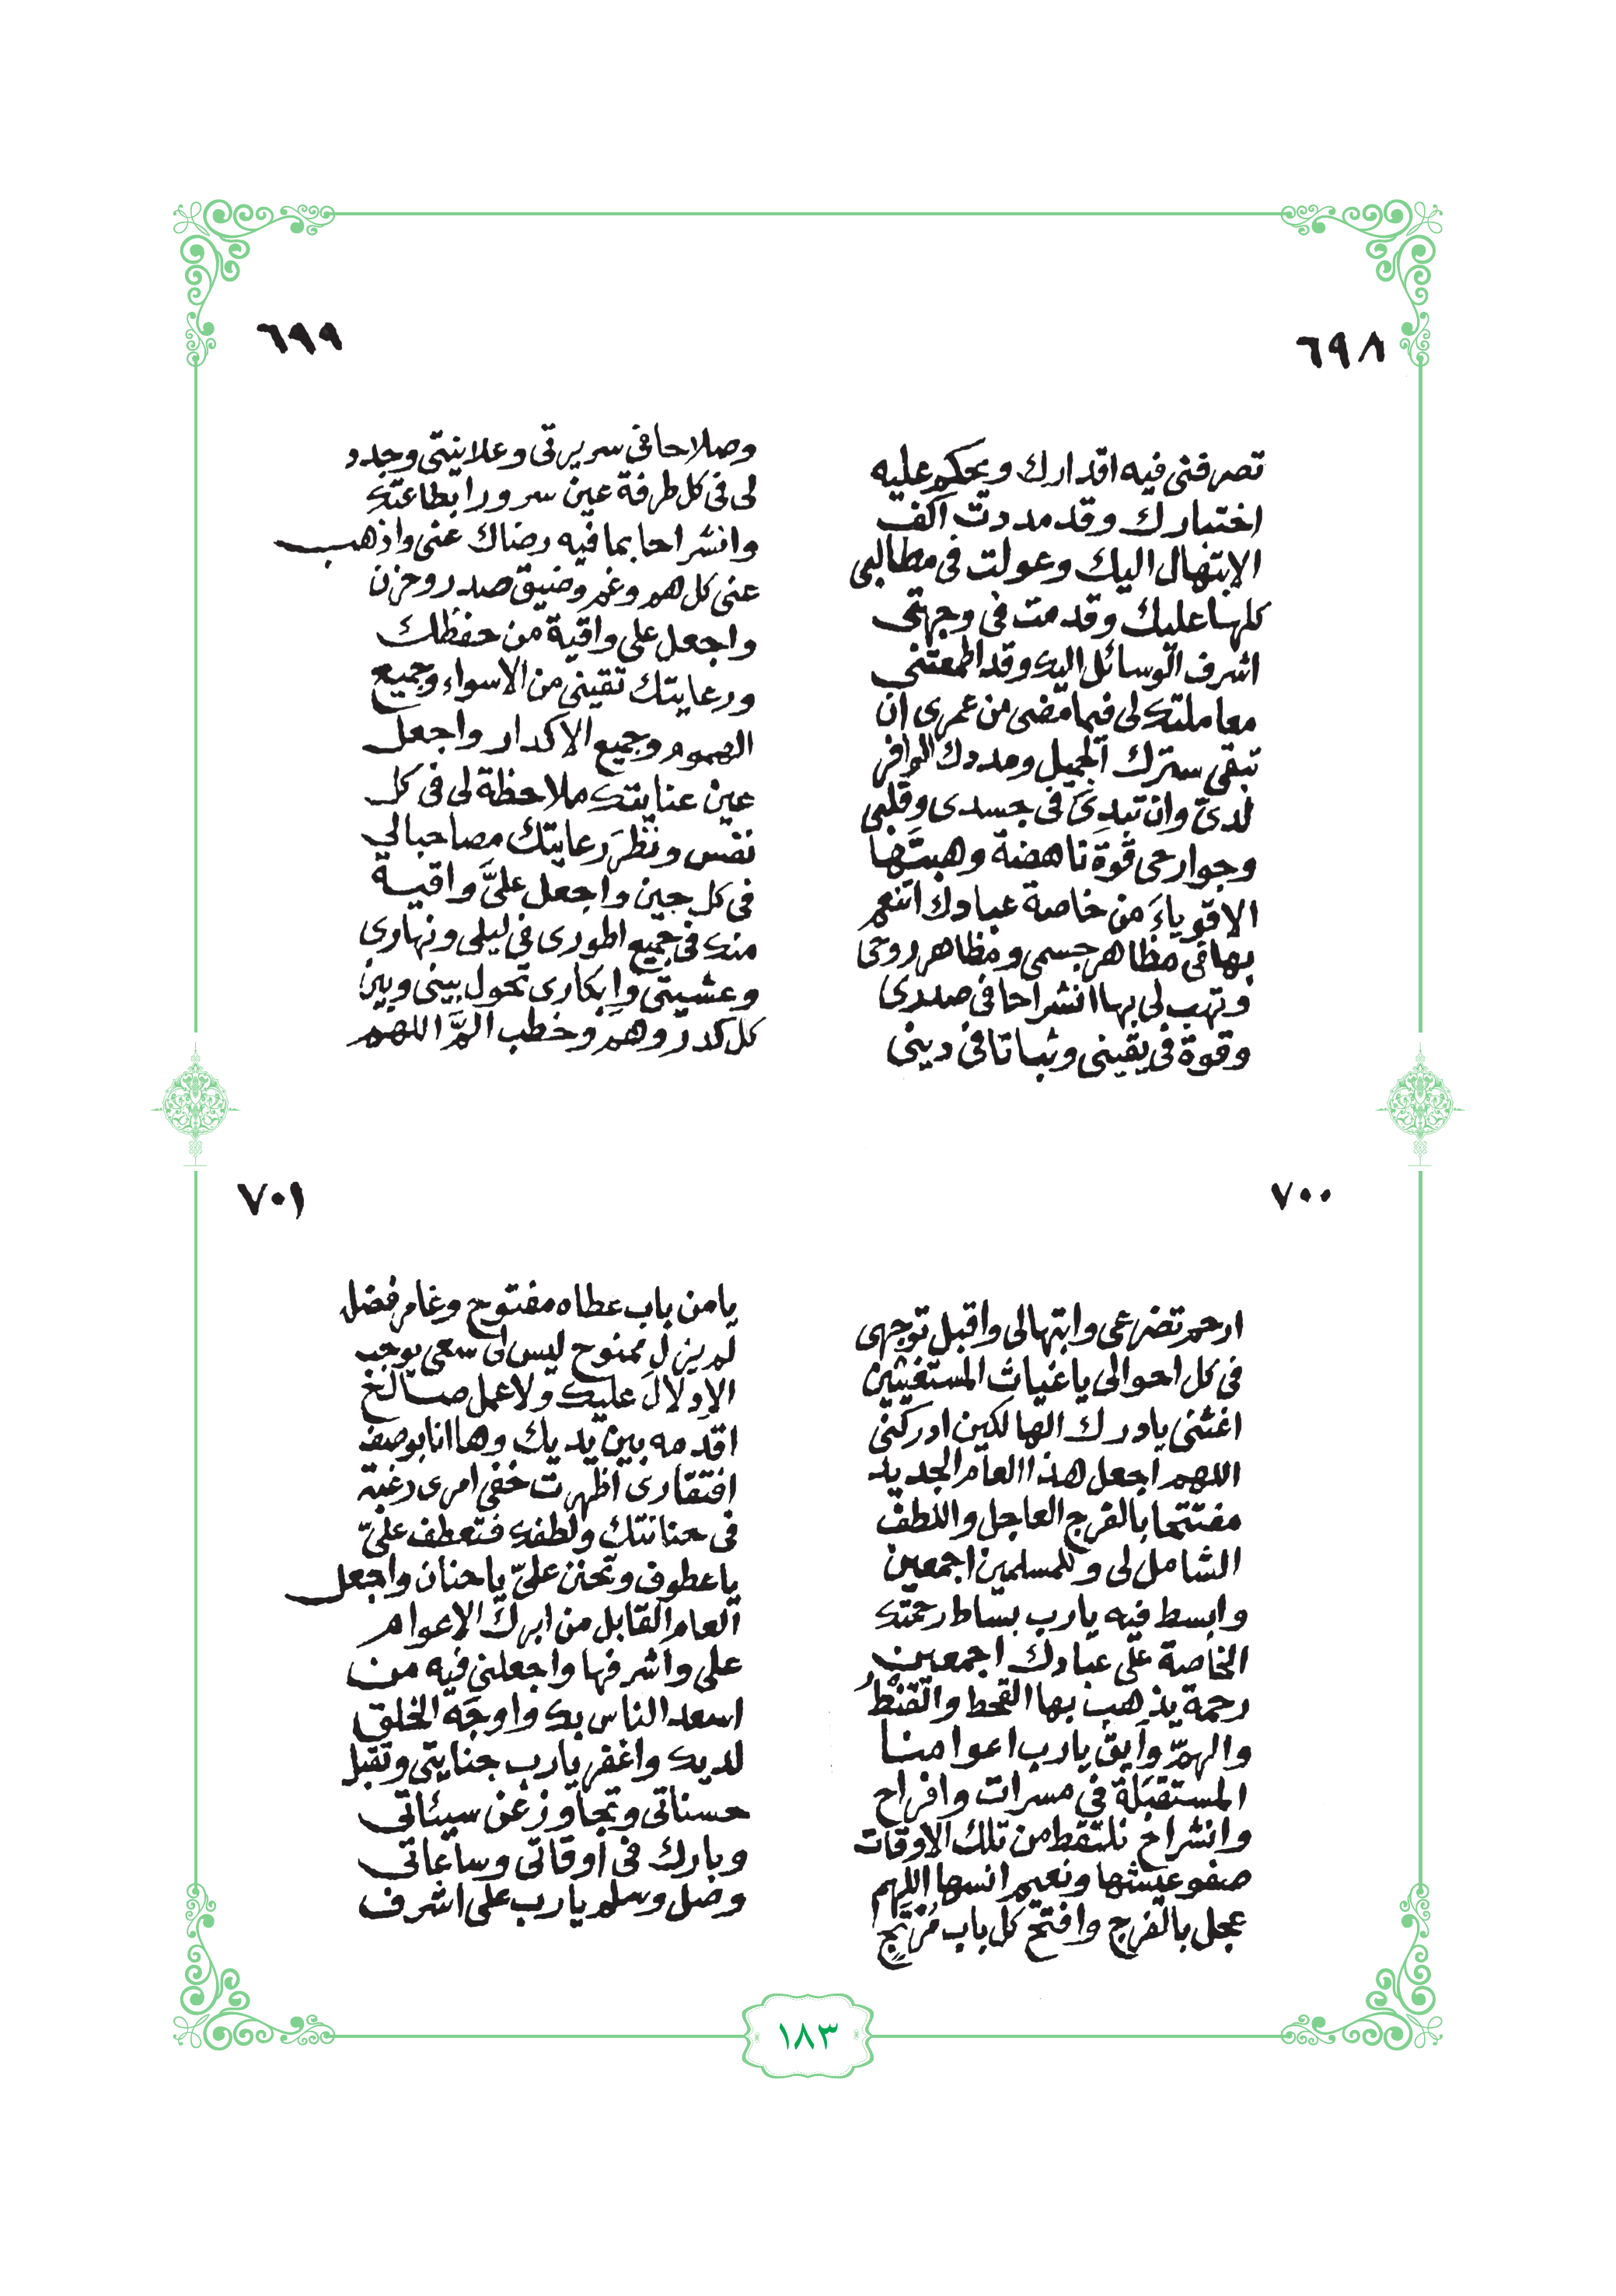 ٦٩٨
تصرفنى فيه اقدارك ويحكم عليه
اختيارك وقد مددت اكف
الابتهال اليك وعولت فى مطالبى
كلها عليك وقدمت فى وجهتى
اشرف الوسائل اليك وقد اطمعتنى
معاملتك لى فيما مضى من عمرى ان
تبقى سترك الجميل ومددك الوافر
لدىّ وان تبدئ فى جسدى وقلبى
وجوارحى قوة ناهضة وهبتَها
الاقوياءَ من خاصة عبادك اتنعم
بها فى مظاهر جسمى ومظاهر روحى
وتهب لى بها انشراحا فى صدرى
وقوة فى يقينى وثباتا فى دينى
٦٩٩
وصلاحا فى سريرتى وعلانيتى وجدد
لى فى كل طرفة عين سرورا بطاعتك
وانشراحا بما فيه رضاك عنى واذهب
عنى كل هم وغم وضيق صدر وحزن
واجعل على واقية من حفظك
ورعايتك تقينى من الاسواء وجميع
الهموم وجميع الاكدار واجعل
عين عنايتك ملاحظة لى فى كل
نفس ونظرَ رعايتك مصاحبا لي
فى كل حين واجعل علىَّ واقية
منك فى جميع اطورى فى ليلى ونهارى
وعشيتى وإبكارى تحول بينى وبين
كل كدر وهم وخطب المَّ اللهم
٧٠٠
ارحم تضرعى وابتهالى واقبل توجهى
فى كل احوالى يا غياث المستغيثين
اغثنى يا درك الهالكين ادركنى
اللهم اجعل هذا العام الجديد
مفتتحا بالفرج العاجل واللطف
الشامل لى وللمسلمين اجمعين
وابسط فيه يارب بساط رحمتك
الخاصة على عبادك اجمعين
رحمة يذهب بها القحط والقنط
والهمّ وأبق يارب اعوامنا
المستقبلة في مسرات وافراح
وانشراح نلتقط من تلك الاوقات
صفو عيشها ونعيم انسها اللهم
عجل بالفرج وافتح كل باب مُرْتَجٍ
٧٠١
يا من باب عطاه مفتوح وغامر فضل
لم يزل ممنوح ليس لى سعى يوجب
الإدلال عليك ولا عمل صالح
اقدمه بين يديك وها انا بوصف
افتقارى اظهرت خفي امرى رغبة
فى حنانتك ولطفك فتعطف علىّ
يا عطوف وتحنن علىّ يا حنان واجعل
العام القابل من ابرك الاعوام
على واشرفها واجعلنى فيه من
اسعد الناس بك واوجَه الخلق
لديك واغفر يارب جنايتى وتقبل
حسناتى وتجاوز عن سيئاتى
وبارك فى أوقاتى وساعاتى
وصل وسلم يا رب على اشرف
١٨٣